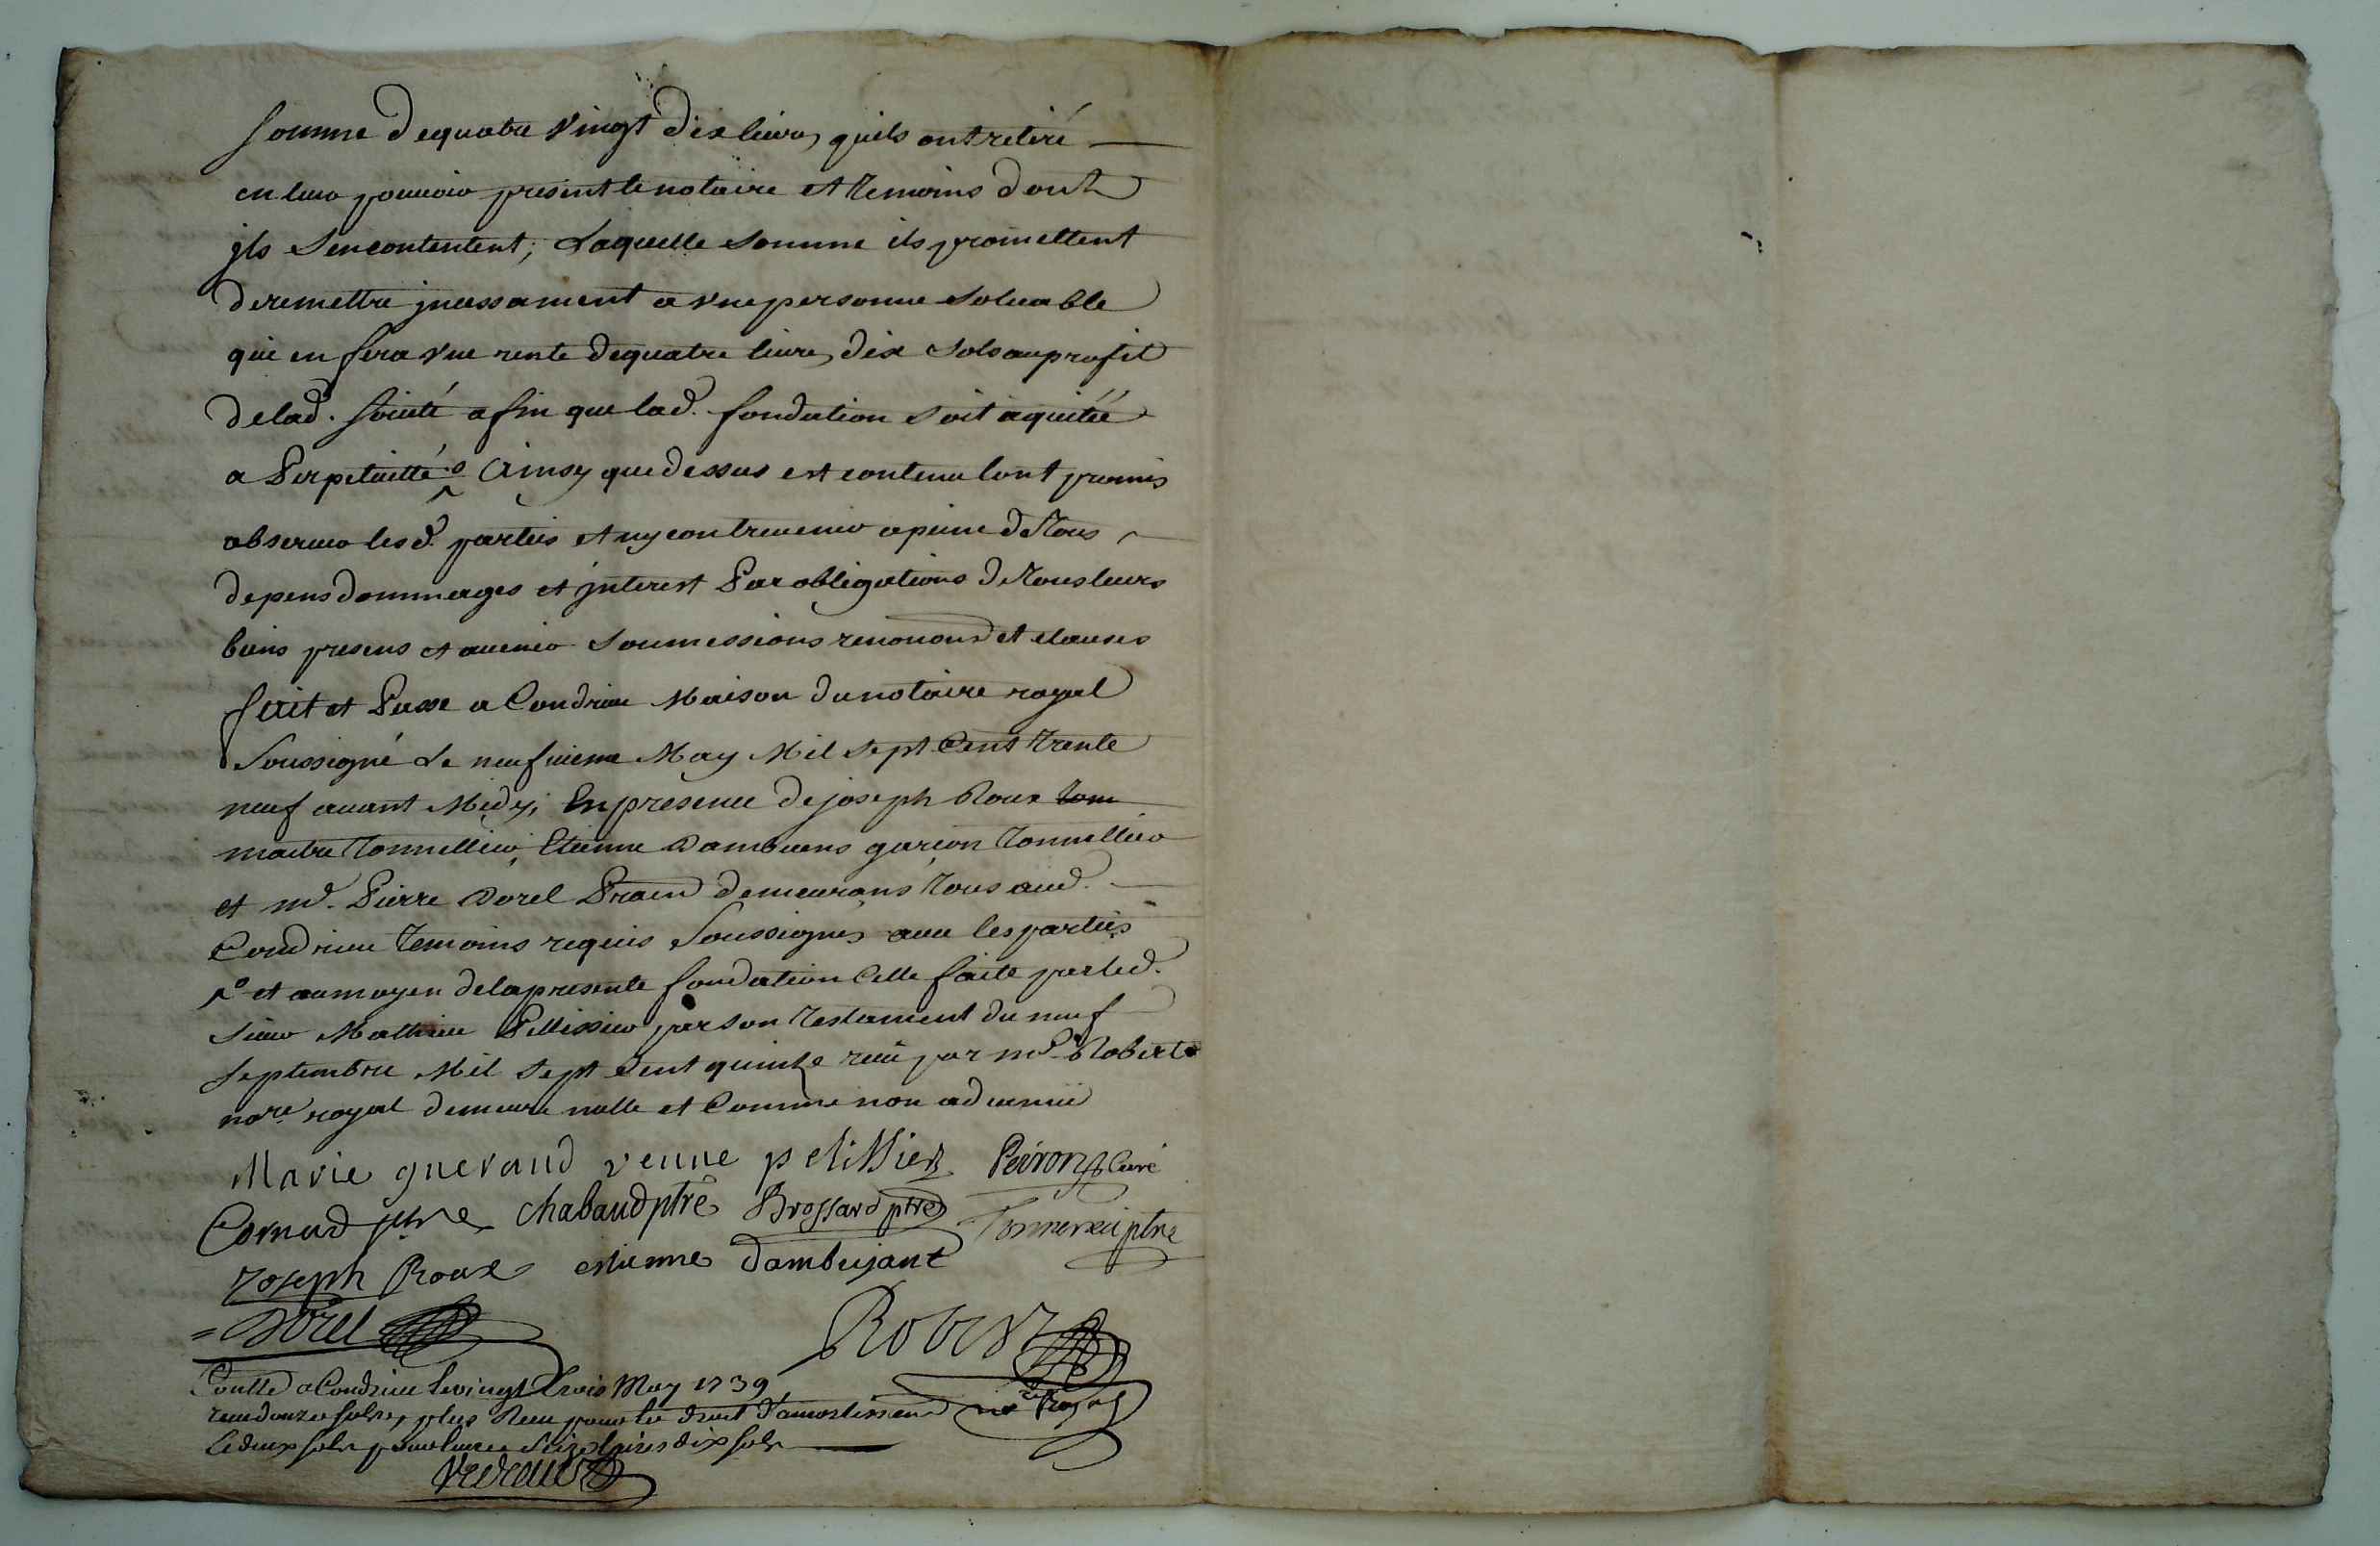 somme dequatre vingt dix livres quils ont retiré
en leur pouvoir present le notaire et temoins dont
jls sen contentent; Laquelle somme ils promettent
deremettre jncessament a vne personne soluable
qui en fera vne rente dequatre liures dix sols au profit
de lad. societé afin que lad. fondation soit aquitée
a Perpetuitté Ainsy que dessus est contenu lont promis
obseruer lesd. parties et ny contreuenir a peine de tous
depens dommages et jnterest Par obligations de tous leurs
biens presens et auenir soumessions renonons et clauses
fait et Passe a Condrieu Maison du notaire royal
soussigné Le neufuieme May Mil sept Cent trente
neuf auant Midy; En presence de joseph Roux
maitre tonnellier, Etienne Dambuens garçon tonnellier
et me. Pierre Dorel Praen demeurans tous aud.
Condrieu temoins requis soussignes auec les parties
et au moyen de la presente fondation Celle faite par led.
sieur Mathieu Pellissier par son testament du neuf
septembre Mil sept Cent quinze reçu par me Robert
nore royal demeure nulle et Comme non aduenuë
Marie guerand veuue pelissier Peiron Curé
Cornud ptre chabaud ptre Brossard ptre ptre
Joseph Roux estienne dambujant
Dorel Robert
Conllé a Condrieu le vingt trois May 1739
receu douze sols, plus Receu pour le droit d'amortissem nore Royal